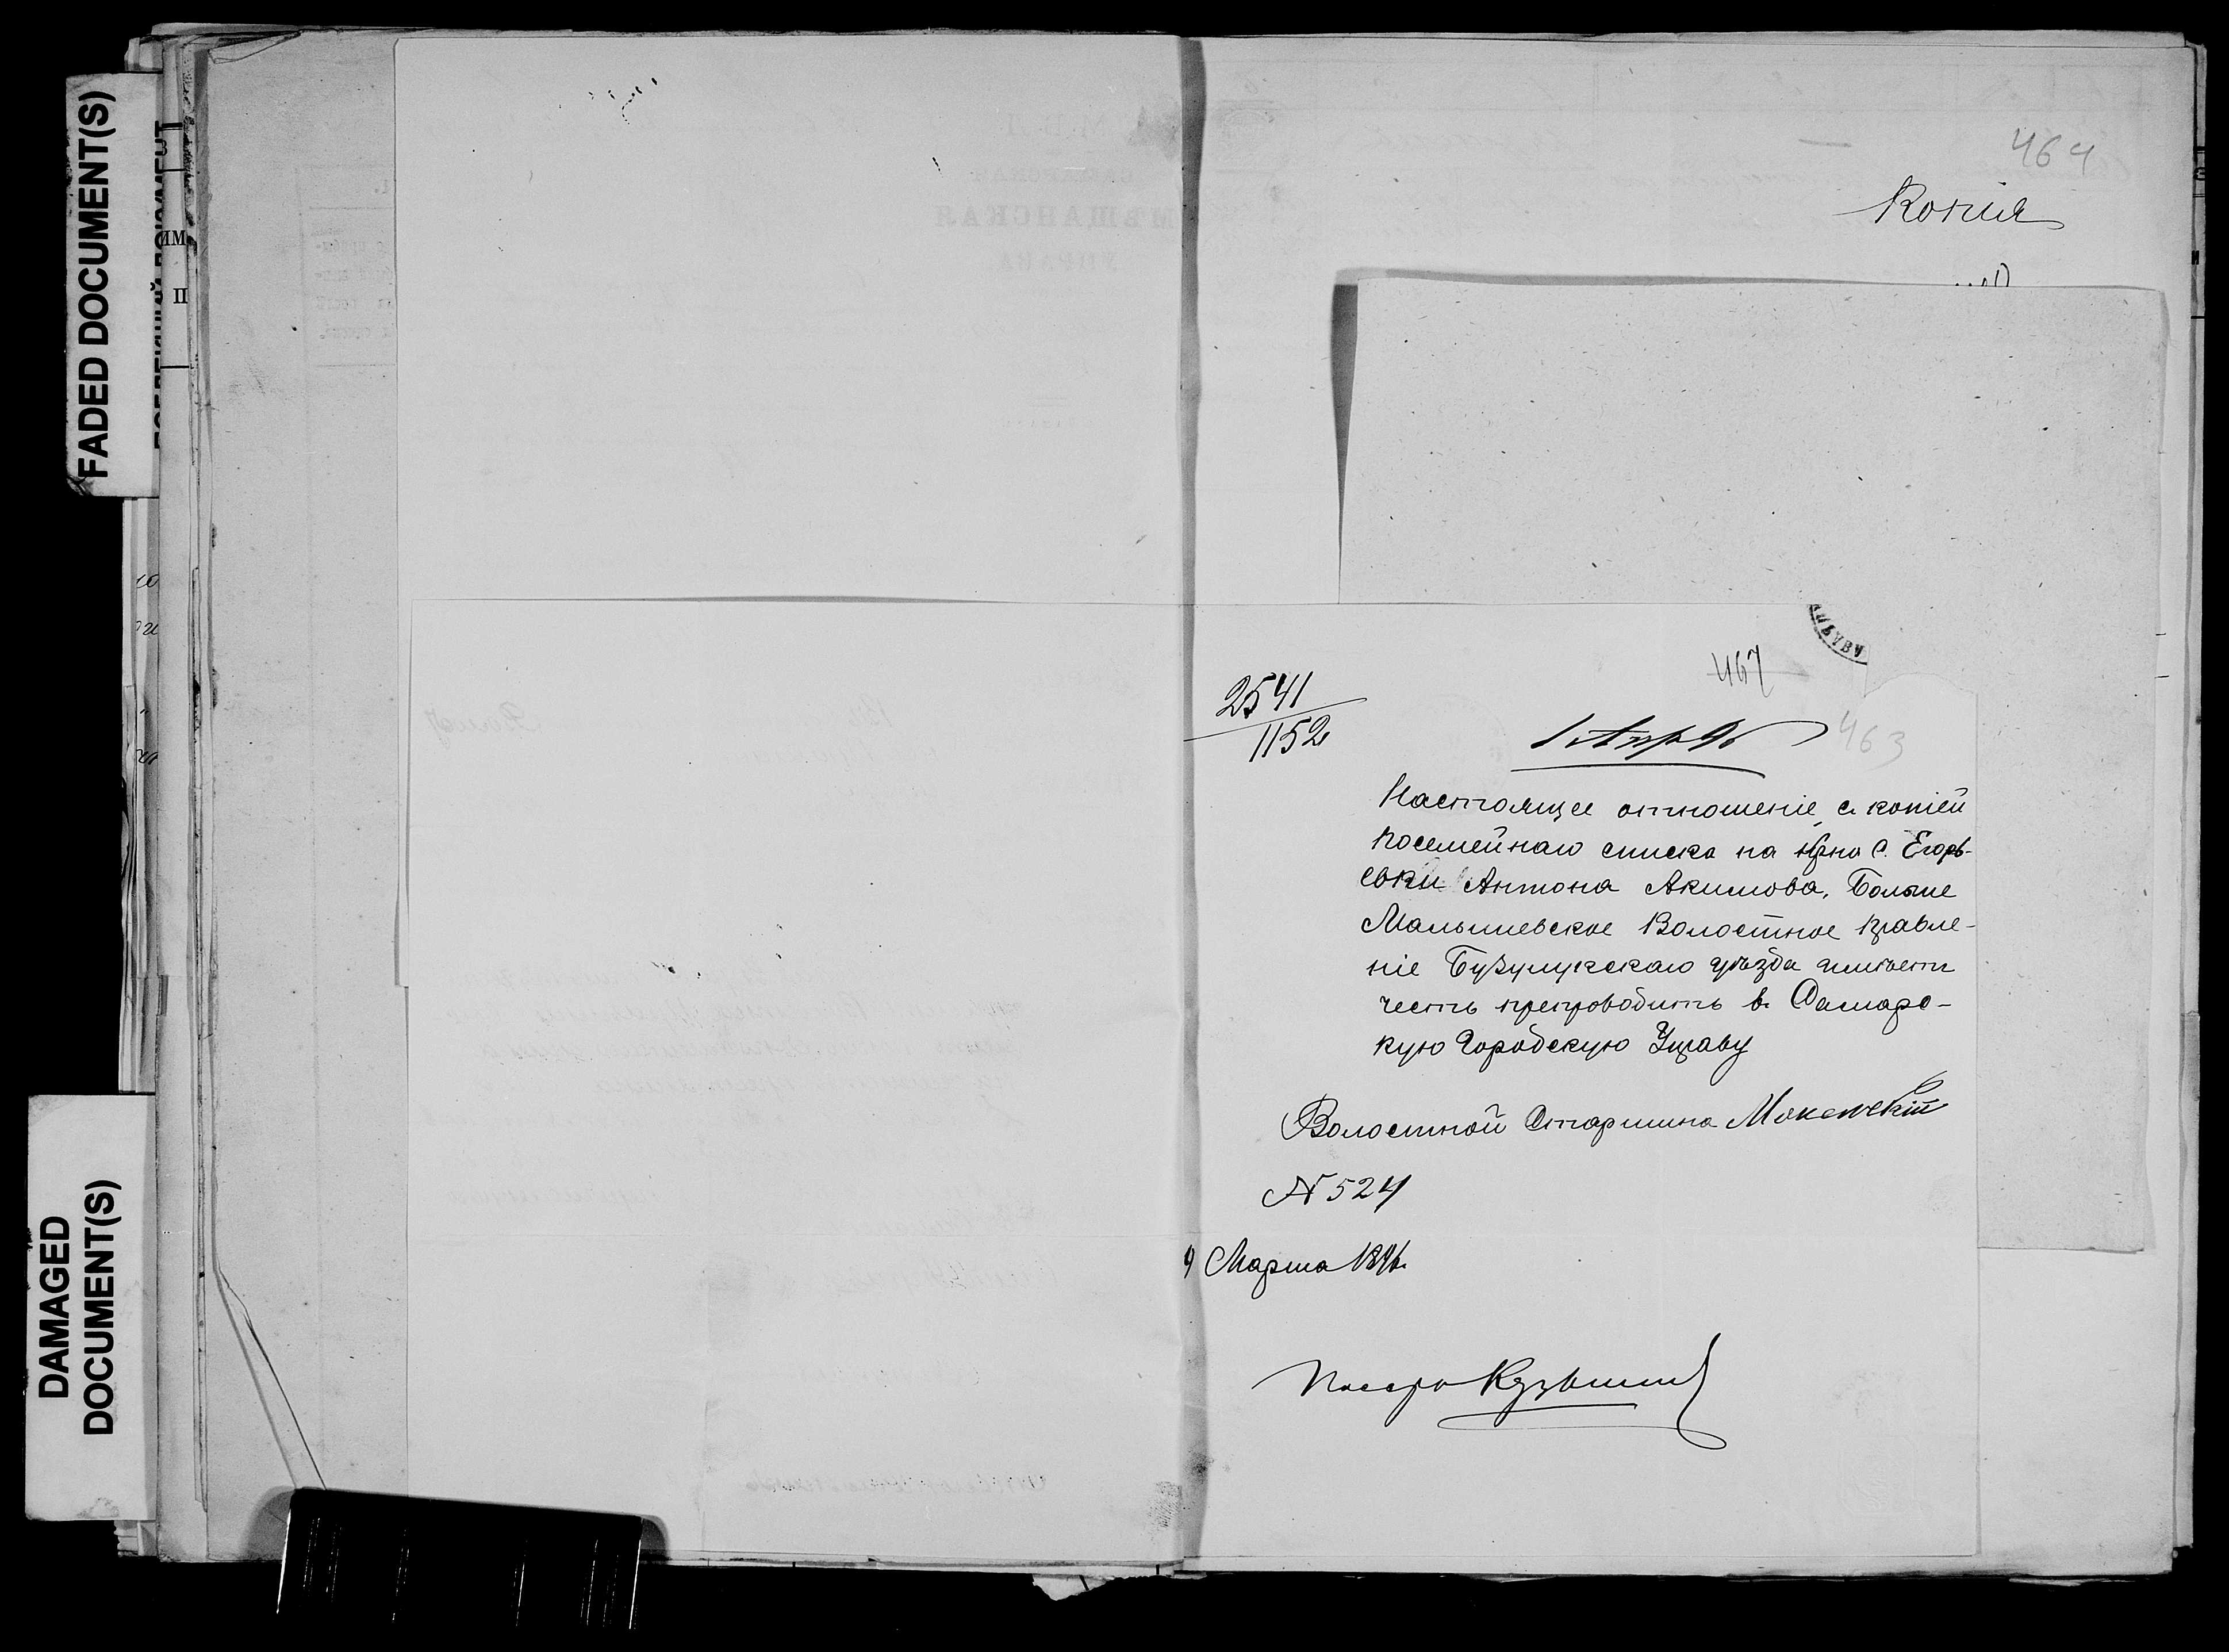 FADED DOCUMENT(S)
DAMAGED
DOCUMENT(S)
464
Копия
467
2541
1152
1 Апр 96
463
Настоящее отношеніе, съ копіей
посемейнаго списка на кр-на с. Егорь-
евки Антона Акимова, Больше
Малышевское Волостное Правле-
ніе Бузулукскаго уѣзда имѣетъ
честь препроводить въ Самарс-
кую Городскую Управу
Волостной Старшина
№ 524
9 Марта 1896.